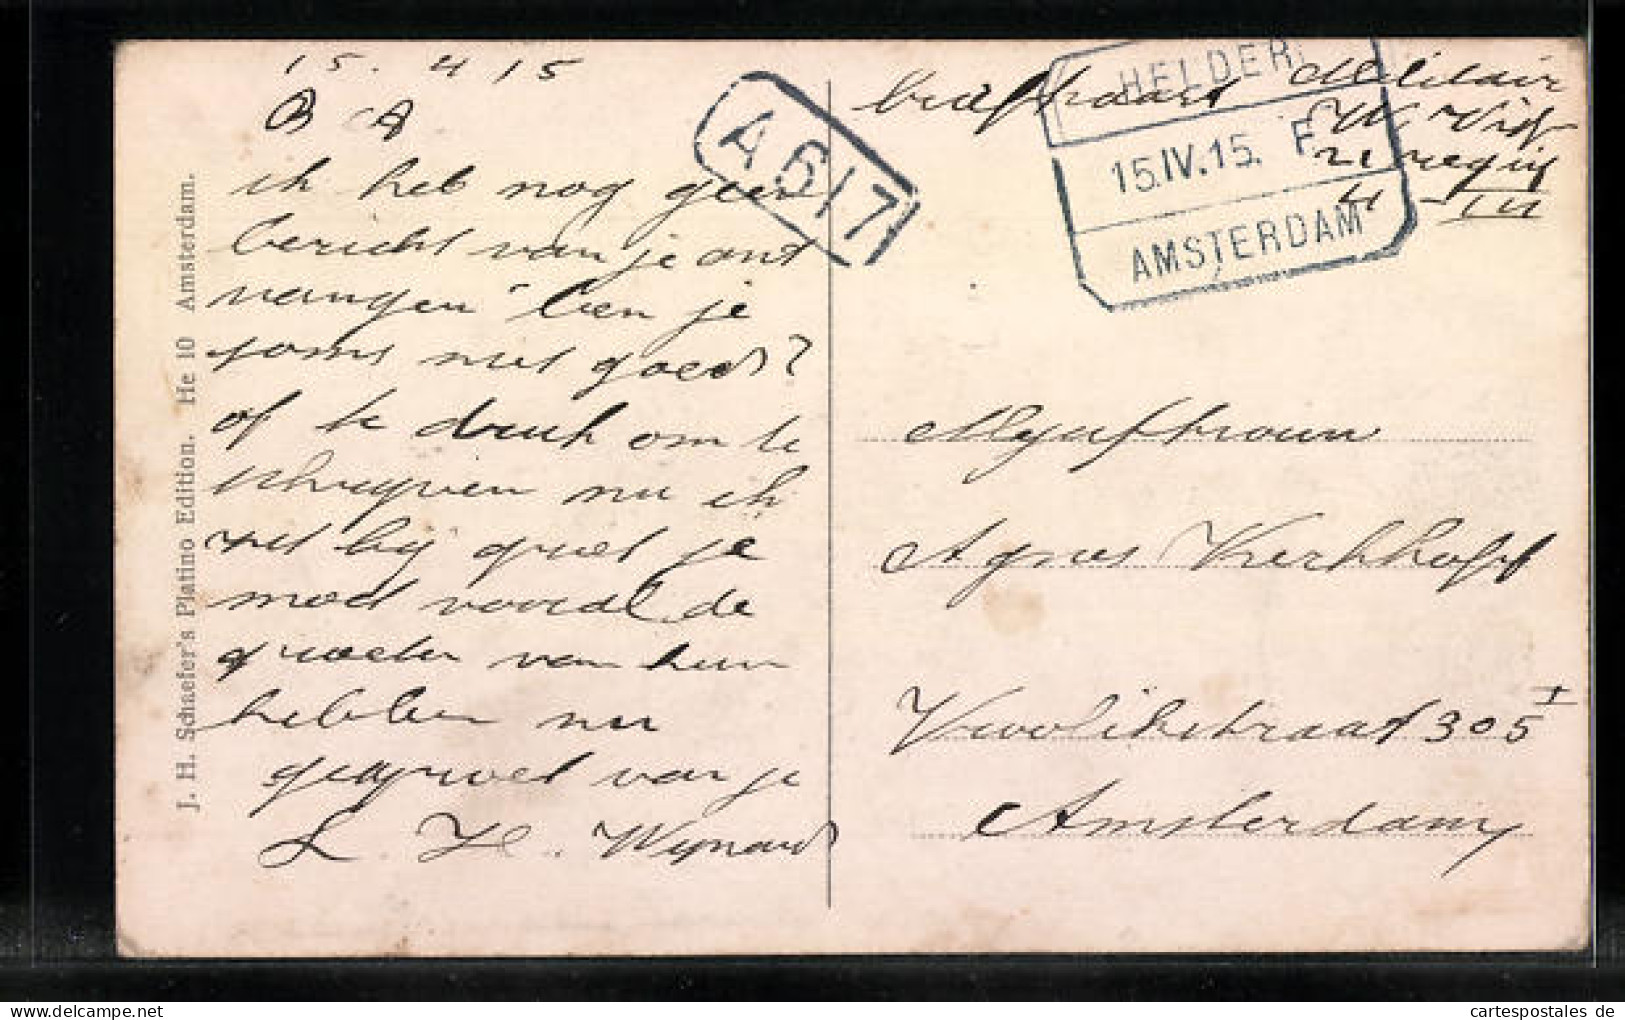 15. 4 15
B A
ik heb nog geen
bericht van je ont
vangen ben je
soms niet goed?
of te druk om te
schrijven nu ik
met bij groet je
moet vooral de
groeten van hun
hebben nu
gegroet van je
L. H. Wijnand
J. H. Schaefer's Platino Edition. He 10 Amsterdam.
A 617
briefkaart Militair
21 reg inf
II - III
HELDER
15.IV.15. F
AMSTERDAM
Mejufvrouw
Agnes Kerkhoff
Vrolikstraat 305 I
Amsterdam
cartespostales de